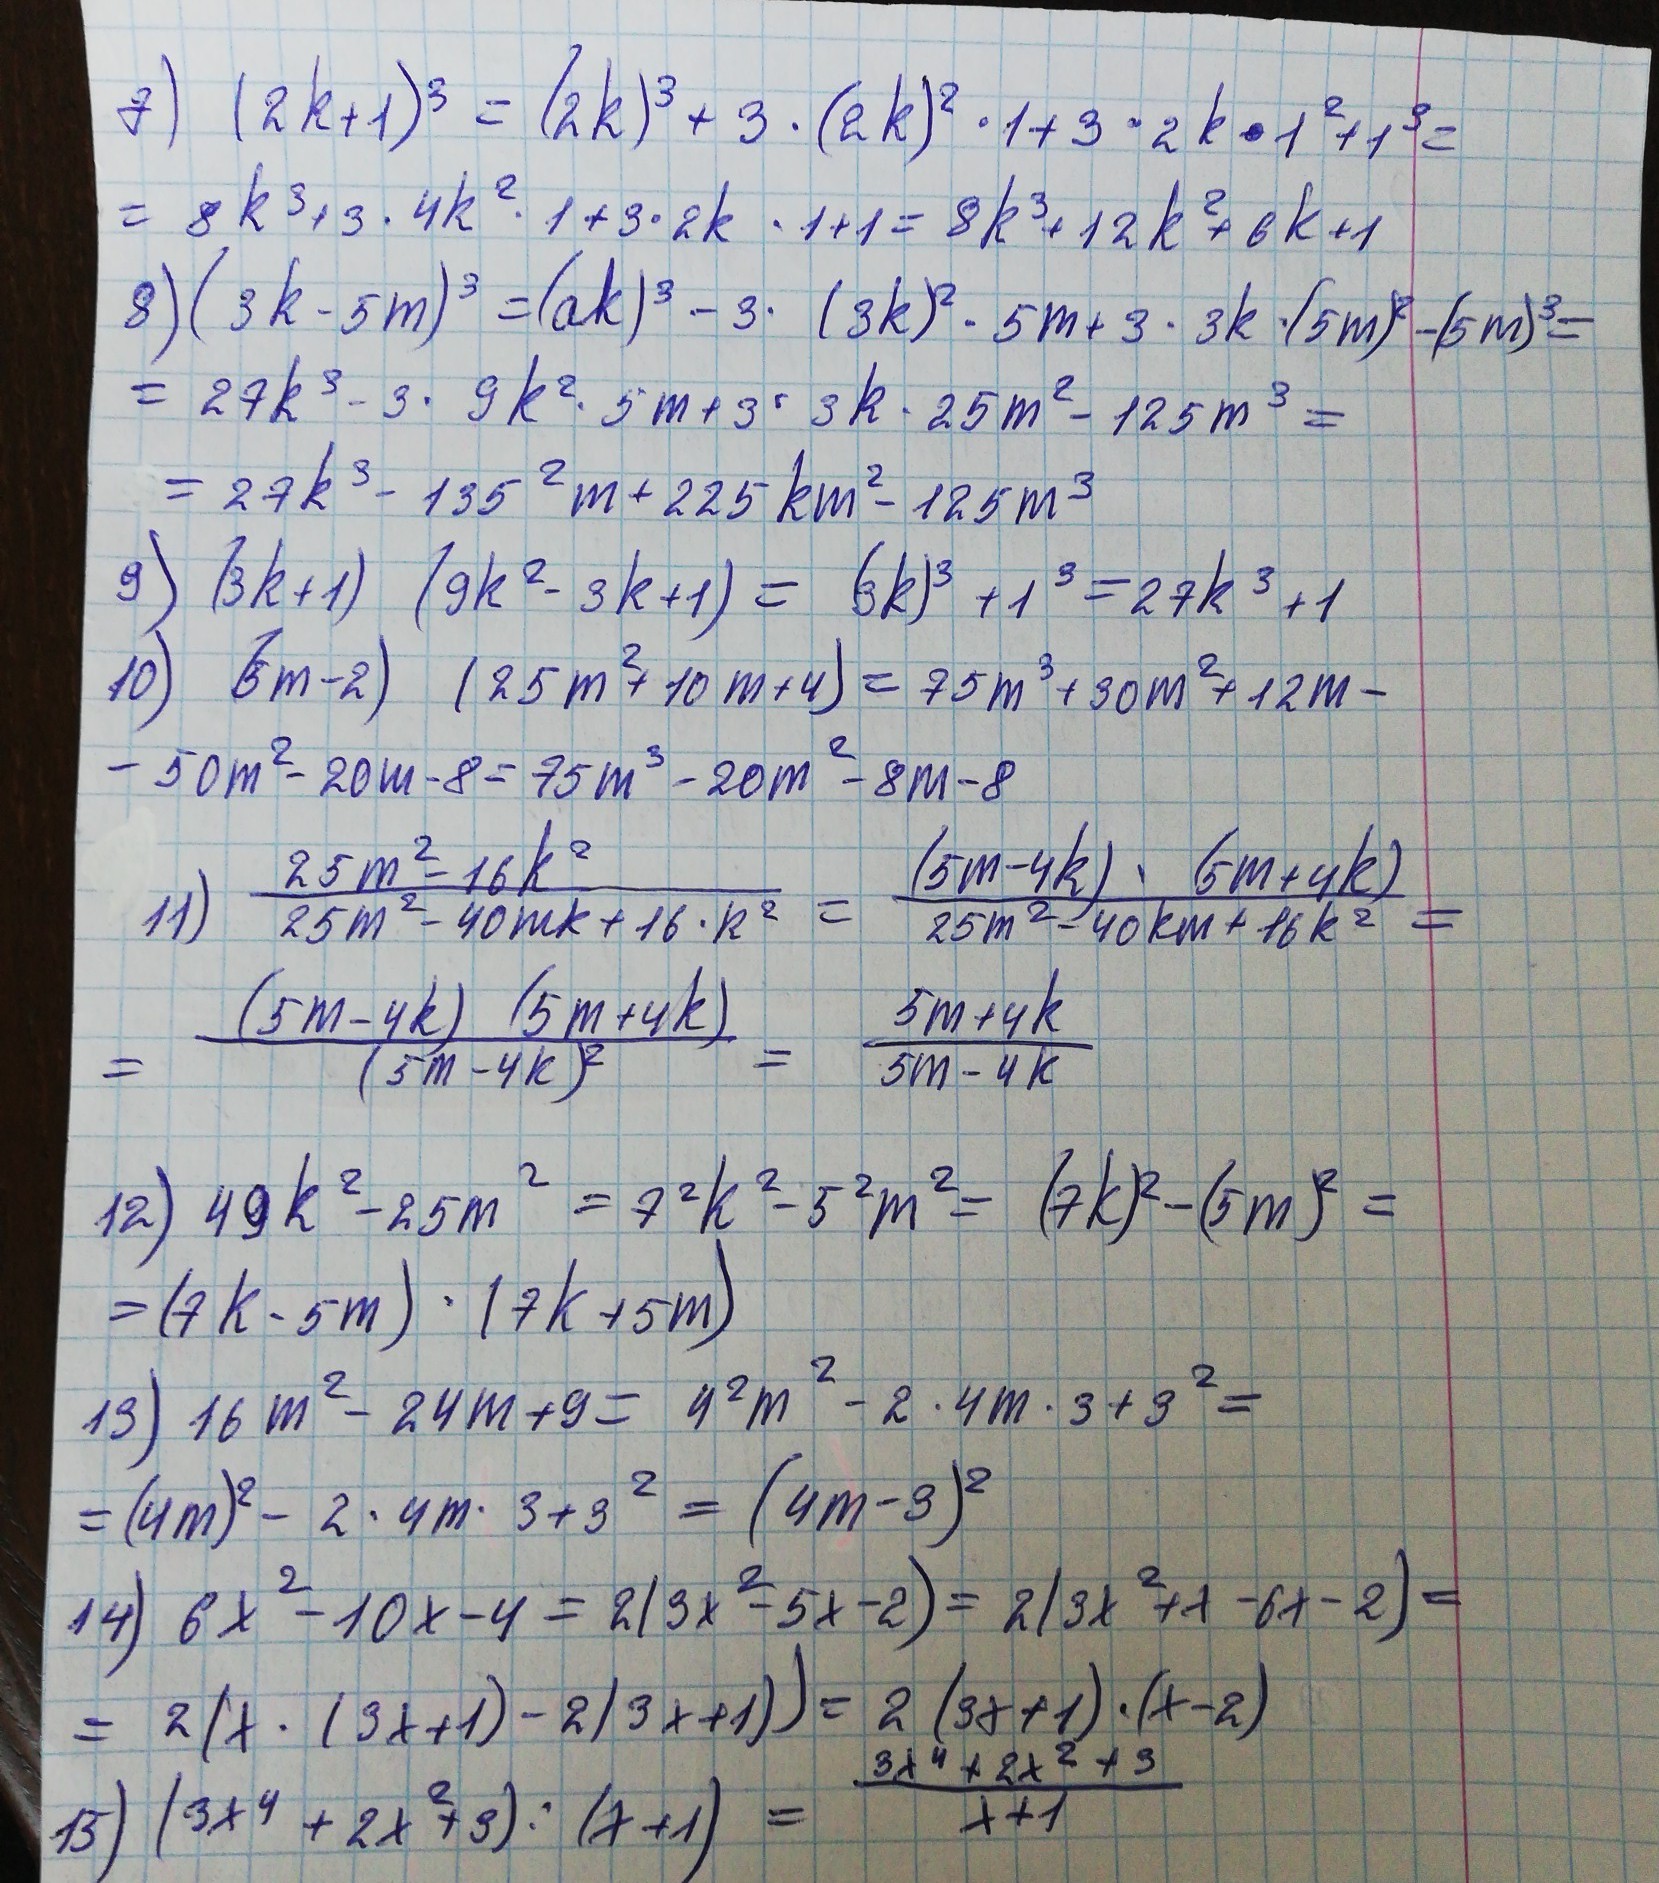 7) (2k+1)³ = (2k)³ + 3 · (2k)² · 1 + 3 · 2k · 1² + 1³ =
= 8k³ + 3 · 4k² · 1 + 3 · 2k · 1 + 1 = 8k³ + 12k² + 6k + 1
8) (3k - 5m)³ = (ak)³ - 3 · (3k)² · 5m + 3 · 3k · (5m)² - (5m)³ =
= 27k³ - 3 · 9k² · 5m + 3 · 3k · 25m² - 125m³ =
= 27k³ - 135²m + 225km² - 125m³
9) (3k+1) (9k² - 3k + 1) = (3k)³ + 1³ = 27k³ + 1
10) (3m-2) (25m² + 10m + 4) = 75m³ + 30m² + 12m -
- 50m² - 20m - 8 = 75m³ - 20m² - 8m - 8
11) (25m² - 16k²)/(25m² - 40mk + 16 · k²) = ((5m-4k) · (5m+4k))/(25m² - 40km + 16k²) =
= ((5m-4k) (5m+4k))/((5m-4k)²) = (5m+4k)/(5m-4k)
12) 49k² - 25m² = 7²k² - 5²m² = (7k)² - (5m)² =
= (7k - 5m) · (7k + 5m)
13) 16m² - 24m + 9 = 4²m² - 2 · 4m · 3 + 3² =
= (4m)² - 2 · 4m · 3 + 3² = (4m - 3)²
14) 6x² - 10x - 4 = 2(3x² - 5x - 2) = 2(3x² + x - 6x - 2) =
= 2(x · (3x+1) - 2(3x+1)) = 2 (3x+1) · (x-2)
15) (3x⁴ + 2x² + 3) : (x+1) = (3x⁴ + 2x² + 3)/(x+1)